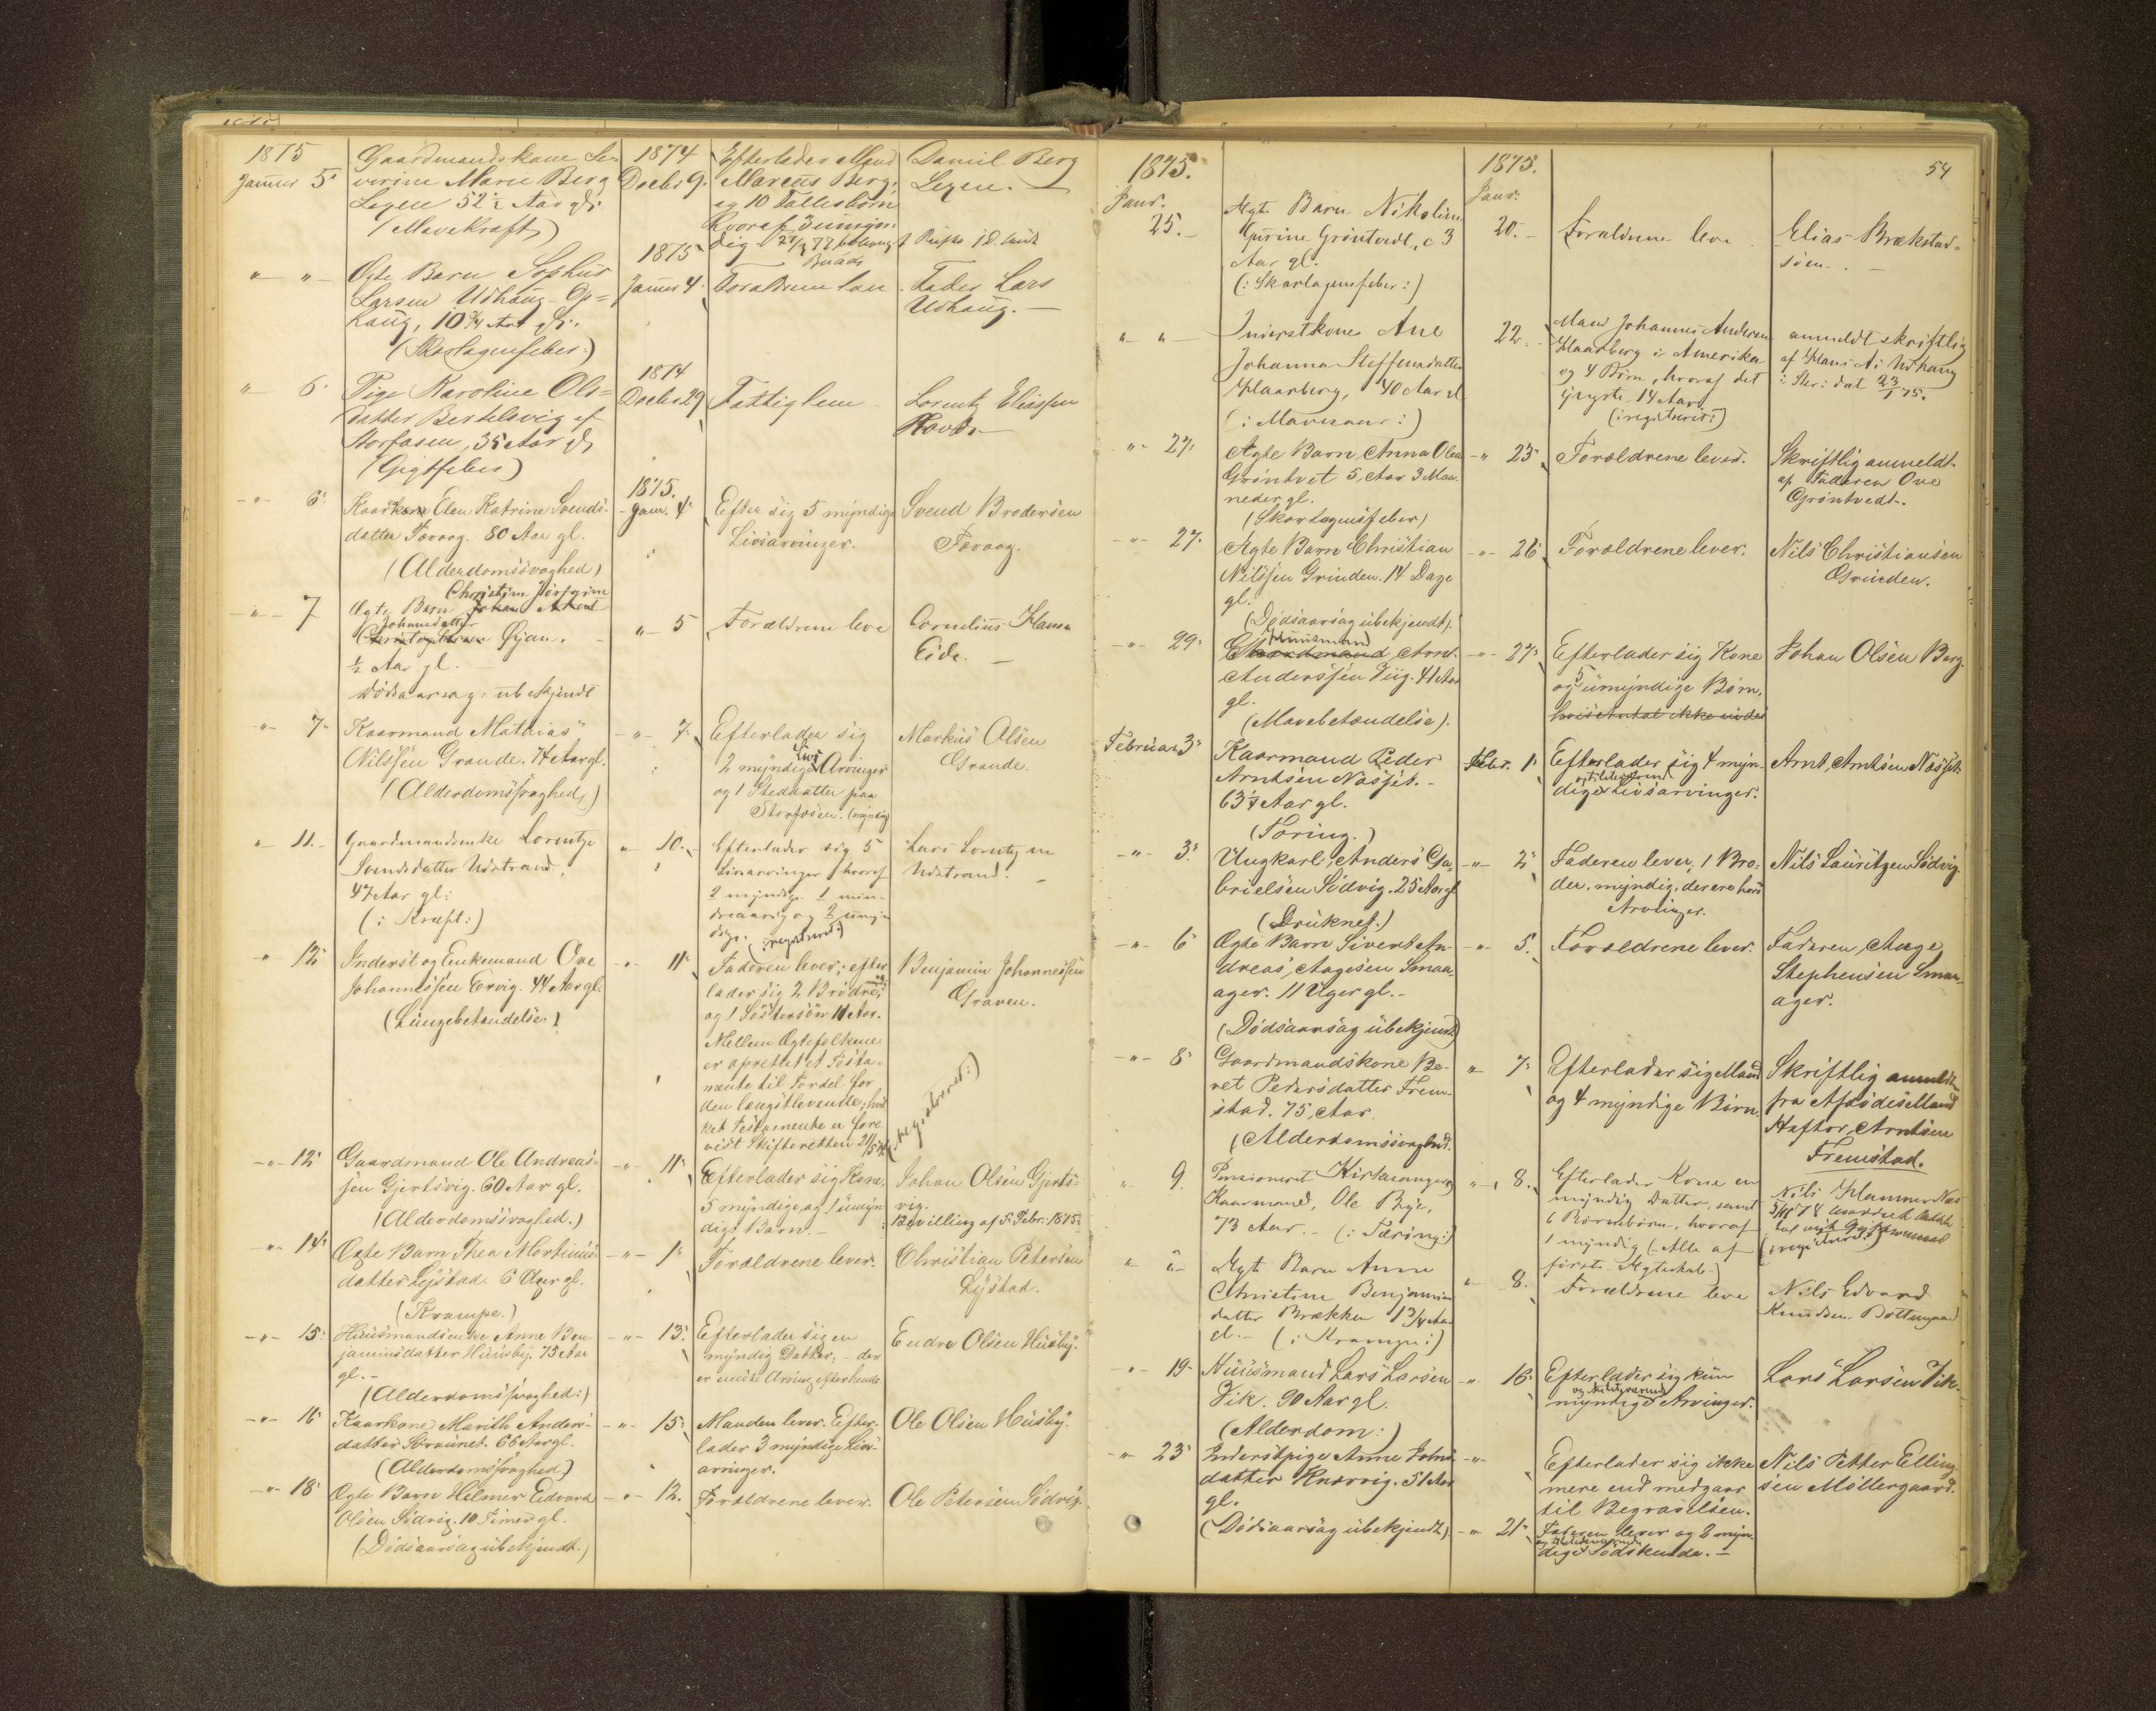 1875
Januar 5
Gaardmandskone Se-
verine Marie Berg
Legen 52½ Aar gl.
(Mavekræft)
1874
Decbr 9.
Efterlader Mand
Marcus Berg,
og 10 Fællesbørn
hvoraf 3 umyn-
dig.
Daniel Berg
Legen. —
" " Ægte Barn Sophus
Larsen Udhaug Op-
haug, 10¾ Aar gl.
(Skarlagensfeber)
1875
Januar 4.
Forældrene leve
Fader Lars
Udhaug. —
" 6 Pige Karoline Ols-
datter Bertelsvig af
Storfosen, 35 Aar gl.
(Gigtfeber)
1874
Decbr 29
Fattiglem
Lorentz Eliassen
Hovde
-"- 6. Kaarkone Elen Katrine Svends-
datter Færaag. 80 Aar gl.
(Alderdomssvaghed)
1875.
Janr. 4.
Efter sig 5 myndige
Livsarvinger.
Svend Brodersen
Færaag.
-"- 7 Ægte Barn Christine Jørgine
Johansdatter
Øjan.
½ Aar gl. —
Dødsaarsag: ubekjendt
" 5
Forældrene leve
Cornelius Hansen
Eide. —
" 7. Kaarmand Mathias
Nilssen Grande. 74 Aar gl.
(Alderdomssvaghed)
-"- 7.
Efterlader sig
2 myndige Livs Arvinger
og 1 Steddatter paa
Storfosen. (myndig)
Markus Olsen
Grande.
" 11. Gaardmandsenke Lorentze
Svendsdatter Udstrand,
47 Aar gl.
(: Kræft :)
" 10.
Efterlader sig 5
Livsarvinger hvoraf
2 myndige 1 min-
dreaarig og 2 umyn-
dige. (: registreret :)
Lars Lorentzen
Udstrand. —
" 12. Inderst og Enkemand Ove
Johannessen Ervig. 44 Aar gl.
(Lungebetændelse.)
-"- 11.
Faderen lever; efter-
lader sig 2 Brødre,
og 1 Søstersøn 11 Aar.
Mellem Ægtefolkene
er oprettet et Testa-
mente til Fordel for
den længstlevende; hvil-
ket Testamente er fore-
vist Skifteretten
(: registreret :)
Benjamin Johannessen
Graven.
-"- 12. Gaardmand Ole Andreas-
sen Gjertsvig. 60 Aar gl.
(Alderdomssvaghed.)
-"- 11.
Efterlader sig Kone,
5 myndige, og 1 umyn-
digt Barn. —
Johan Olsen Gjerts-
vig.
Bevilling af 5. Febr. 1875
-"- 14. Ægte Barn Thea Mortinus-
datter Lysstad. 6 Uger gl.
(Krampe.)
-"- 1.
Forældrene lever.
Christian Petersen
Lysstad.
-"- 15. Huusmandsenke Anne Ben-
jaminsdatter Huusby. 75 Aar
gl. —
(Alderdomssvaghed:)
-"- 13.
Efterlader sig en
myndig Datter, — der
er eneste Arving efter hende
Endre Olsen Husby.
-"- 16. Kaarkone Marith Anders-
datter Straunet. 66 Aar gl.
(Alderdomssvaghed)
-"- 15.
Manden lever. Efter-
lader 3 myndige Livs-
arvinger.
Ole Olsen Husby.
-"- 18. Ægte Barn Helmer Edvard
Olsen Sødvig. 10 Timer gl.
(Dødsaarsag ubekjendt.)
-"- 12.
Forældrene lever.
Ole Petersen Sødvig.
54
1875.
Janr.
25. — Ægte Barn Nikoline
Gurine Grøntvedt, c 3
Aar gl.
(: Skarlagensfeber :)
1875.
Janr.
20. —
Forældrene leve
Elias Brækstad-
søen. —
" " Inderstkone Ane
Johanna Steffensdatter
Haarberg, 40 Aar gl.
(: Mavesaar :)
22. —
Mand Johannes Andersen
Haarberg i Amerika
og 4 Børn, hvoraf det
yngste 14 Aar
(: registreret :)
anmeldt skriftlig
af Hans A. Udhaug
i Skr. dat 23/1 75.
" 27. Ægte Barn Anna Olsen
Grøntvet 5 Aar 3 Maa-
neder gl.
(Skarlagensfeber)
-" 23.
Forældrene lever.
Skriftlig anmeldt
af Faderen Ove
Grøntvedt.
-"- 27. Ægte Barn Christian
Nilssen Grinden. 14 Dage
gl.
(Dødsaarsag ubekjendt).
-"- 26.
Forældrene lever.
Nils Christiansen
Grinden.
-"- 29. Huusmand
Gaardmand Arnt
Anderssen Viig. 41 Aar
gl.
(Mavebetændelse).
-"- 27.
Efterlader sig Kone
og 5 umyndige Børn,
hvis Antal ikke vides
Johan Olsen Berg.
Februar 3. Kaarmand Peder
Arntsen Næsset. —
63¼ Aar gl.
(Tæring.)
Febr. 1.
Efterlader sig 4 myn-
dige og tilstedeværende Livsarvinger.
Arnt Arntsen Næsset.
-"- 3. Ungkarl Anders Ga-
brielsen Sødvig. 25 Aar gl
(Druknet.)
-"- 2.
Faderen lever, 1 Bro-
der, myndig, der ere hans
Arvinger.
Nils Lauritzen Sødvig.
-"- 6. Ægte Barn Sivert An-
dreas Aagesen Smaa-
ager. 11 Uger gl. —
(Dødsaarsag ubekjendt)
-"- 5.
Forældrene lever.
Faderen Aage
Stephensen Smaa-
ager.
-"- 8. Gaardmandskone Be-
ret Pedersdatter Frem-
stad. 75 Aar.
(Alderdomssvaghed.
" 7.
Efterlader sig Mand
og 4 myndige Børn.
Skriftlig anmeldt
fra Afdødes Mand
Haftor Arntsen
Fremstad.
" 9. Pensioneret Kirkesanger
Kaarmand, Ole Bye,
73 Aar. — (: Tæring :)
-"- 8.
Efterlader Kone en
myndig Datter, samt
6 Børnebørn, hvoraf
1 myndig (- Alle af
første Ægteskab -)
Nils Hammer
(: registreret :)
" " Ægte Barn Anne
Christine Benjamins-
datter Brækken 1¾ Aar
gl. — (: Krampe :)
" 8.
Forældrene leve
Nils Edvard
Knudsen Bottengaard
-"- 19. Huusmand Lars Larsen
Vik. 90 Aar gl.
(Alderdom:)
-"- 16.
Efterlader sig kun
myndige og tilstedeværende Arvinger.
Lars Larsen Vik.
-"- 23. Inderstpige Anne Johns-
datter Knarvig. 51 Aar
gl.
(Dødsaarsag ubekjendt)
-"- 21.
Efterlader sig ikke
mere end medgaar
til Begravelsen.
Faderen lever og 2 myn-
dige og tilstedeværende Sødskende. —
Nils Petter Elling-
sen Møllergaard.